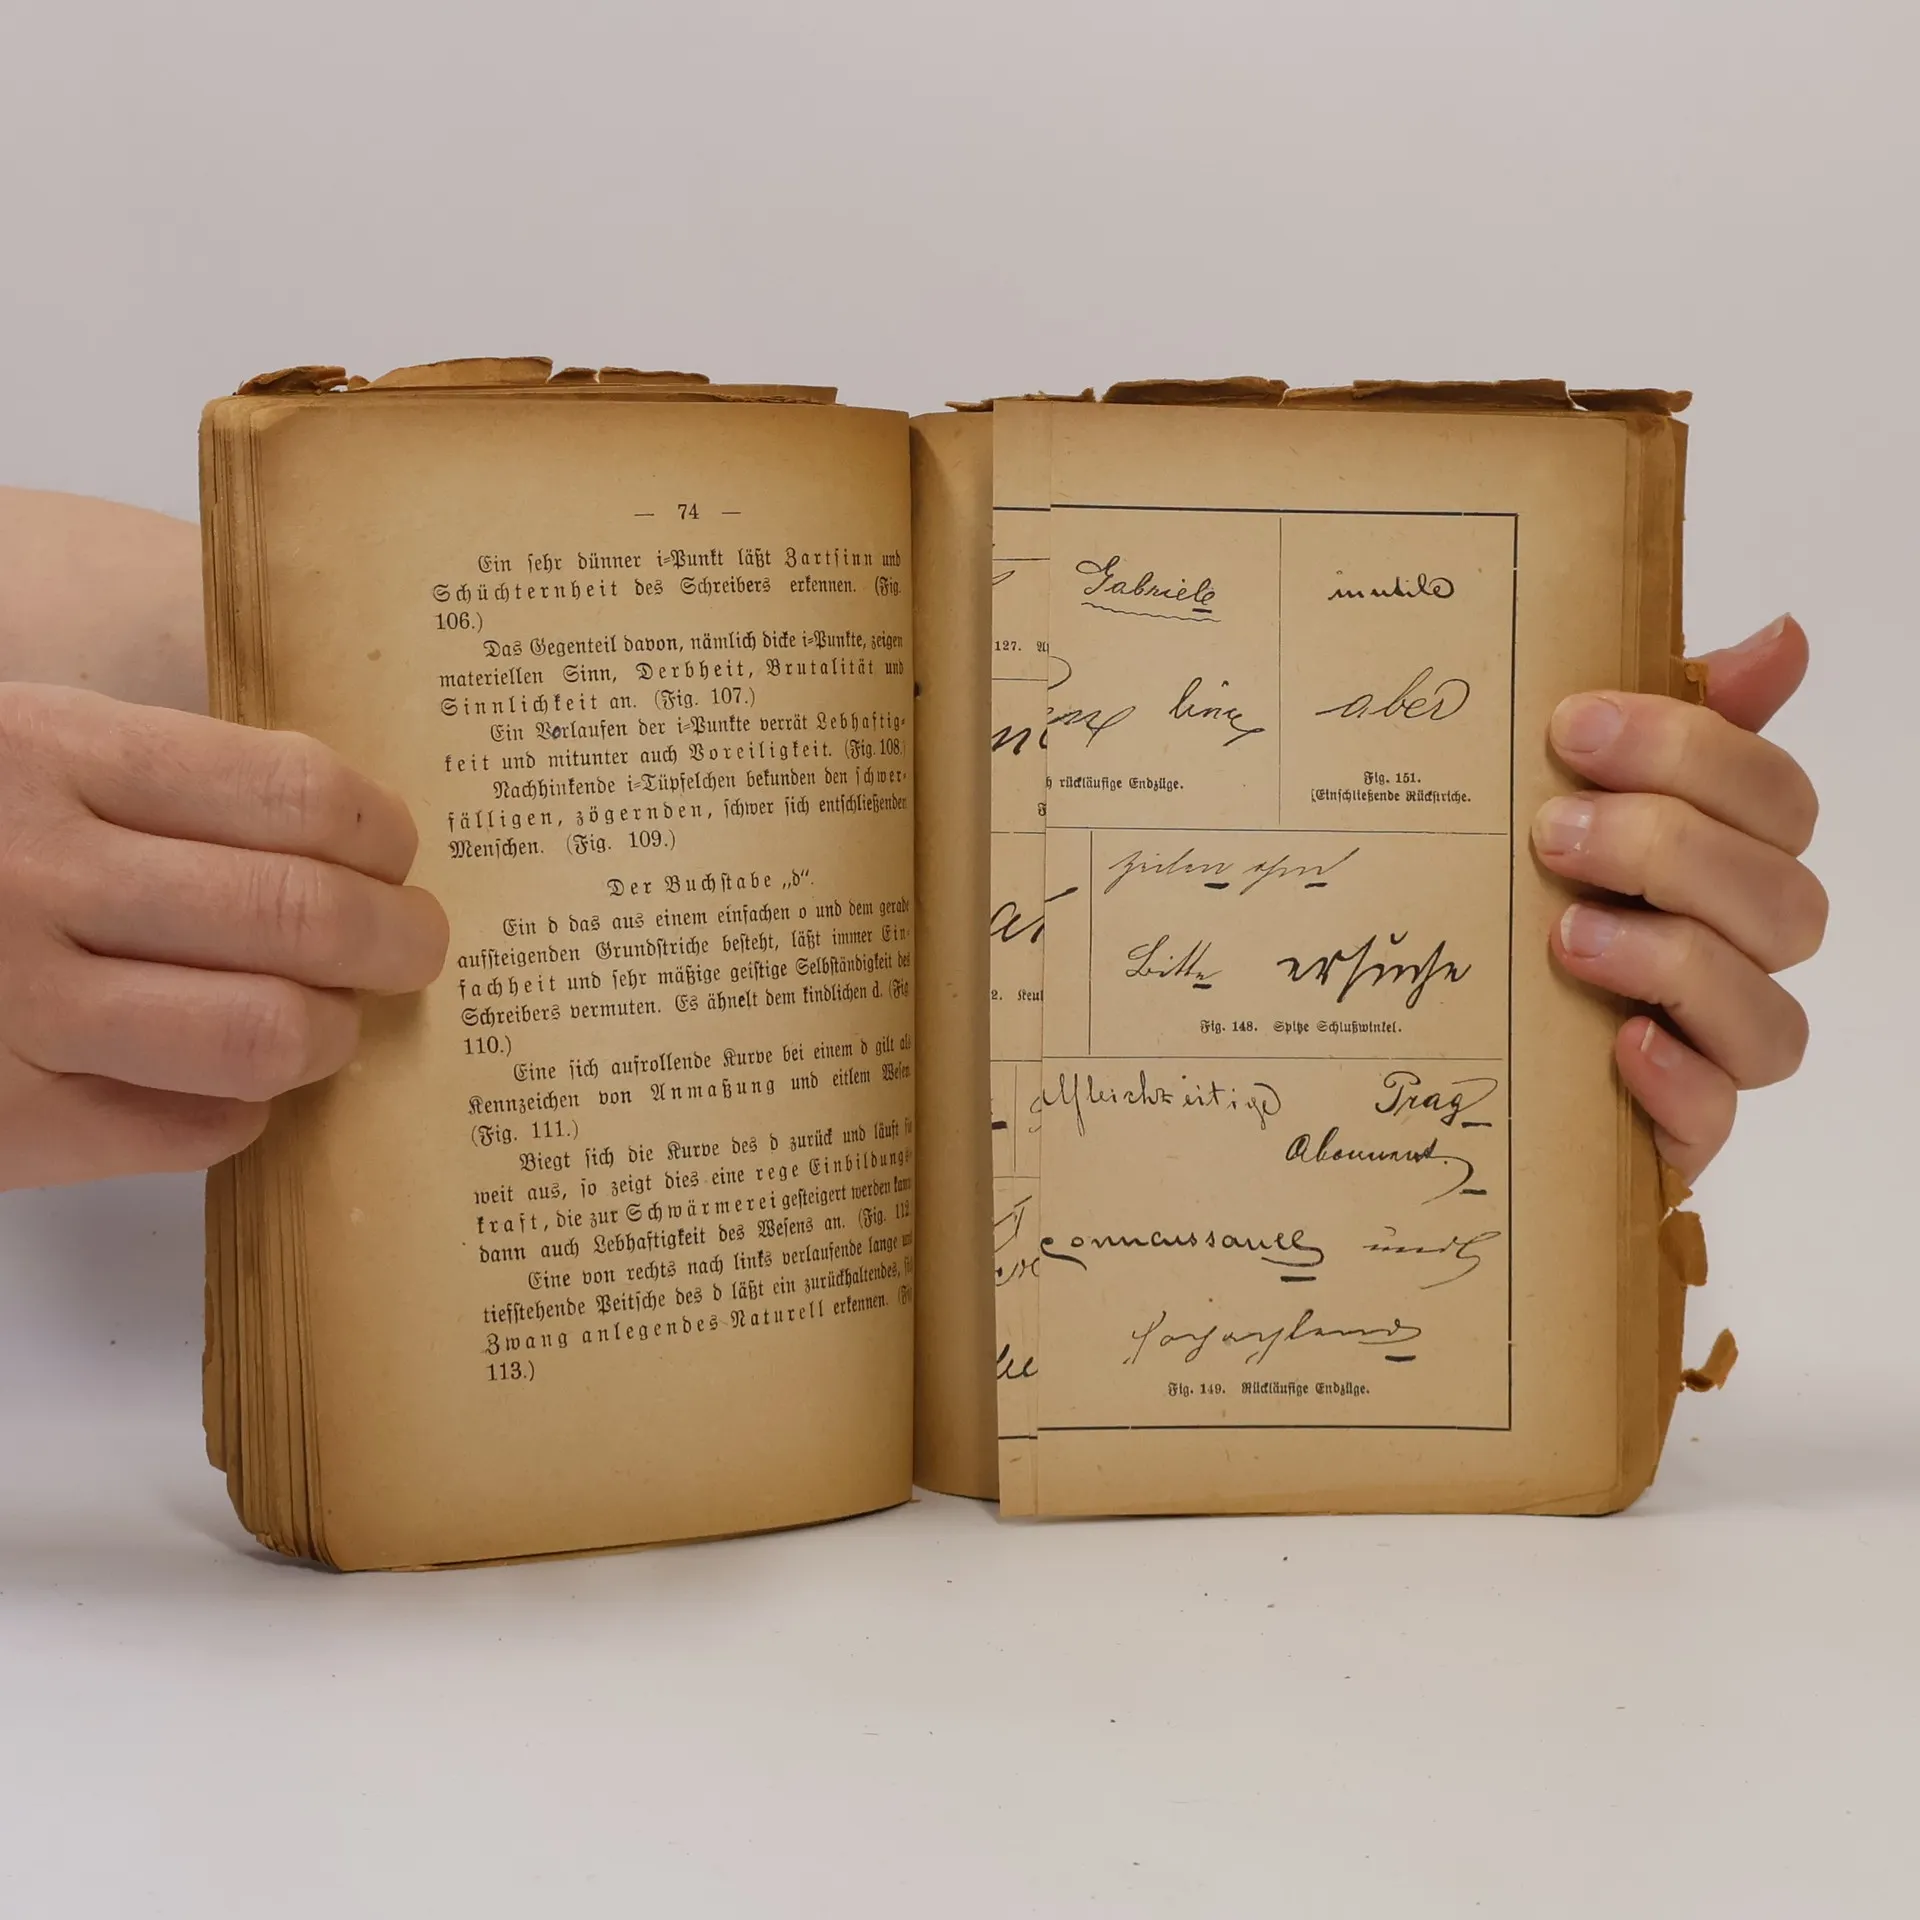 — 74 —
Ein sehr dünner i-Punkt läßt Zartsinn und
Schüchternheit des Schreibers erkennen. (Fig.
106.)
Das Gegenteil davon, nämlich dicke i-Punkte, zeigen
materiellen Sinn, Derbheit, Brutalität und
Sinnlichkeit an. (Fig. 107.)
Ein Vorlaufen der i-Punkte verrät Lebhaftig-
keit und mitunter auch Voreiligkeit. (Fig. 108.)
Nachhinkende i-Tüpfelchen bekunden den schwer-
fälligen, zögernden, schwer sich entschließenden
Menschen. (Fig. 109.)
Der Buchstabe „d“.
Ein d das aus einem einfachen o und dem gerade
aufsteigenden Grundstriche besteht, läßt immer Ein-
fachheit und sehr mäßige geistige Selbständigkeit des
Schreibers vermuten. Es ähnelt dem kindlichen d. (Fig
110.)
Eine sich aufrollende Kurve bei einem d gilt als
Kennzeichen von Anmaßung und eitlem Wesen
(Fig. 111.)
Biegt sich die Kurve des d zurück und läuft
weit aus, so zeigt dies eine rege Einbildungs-
kraft, die zur Schwärmerei gesteigert werden kann
dann auch Lebhaftigkeit des Wesens an. (Fig. 112
Eine von rechts nach links verlaufende lange
tiefstehende Peitsche des d läßt ein zurückhaltendes,
Zwang anlegendes Naturell erkennen.
113.)
127.
Gabriele
inutile
aber
rückläufige Endzüge.
Fig. 151.
Einschließende Rückstriche.
Bitte ersuche
Fig. 148. Spitze Schlußwinkel.
gleichzeitige Prag
Abonnent
und
Fig. 149. Rückläufige Endzüge.